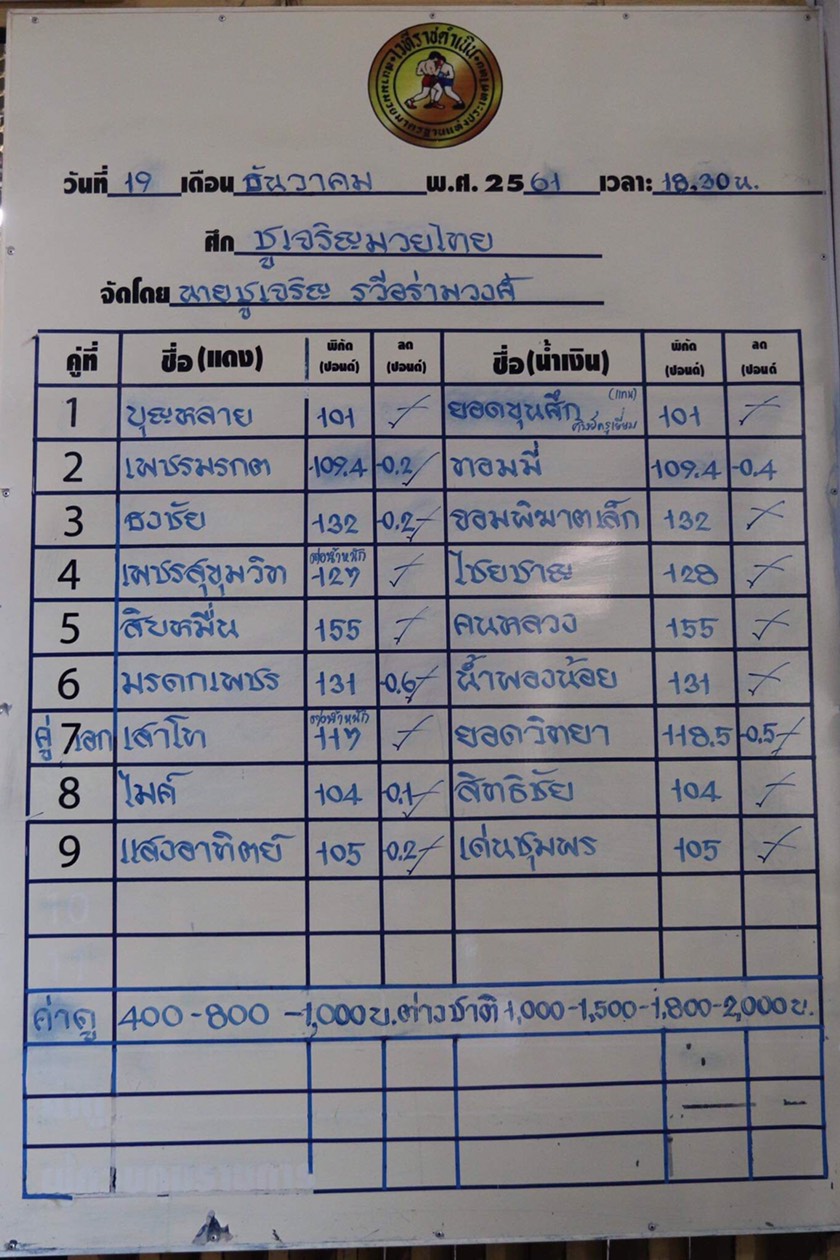 เวทีราชดำเนิน
สนามมวยมาตรฐานแห่งประเทศไทย
วันที่ 19 เดือน ธันวาคม พ.ศ. 2561 เวลา: 18.30 น.
ศึก ชูเจริญมวยไทย
จัดโดย นายชูเจริญ รวีอร่ามวงศ์
คู่ที่ ชื่อ (แดง) พิกัด (ปอนด์) ลด (ปอนด์) ชื่อ (น้ำเงิน) พิกัด (ปอนด์) ลด (ปอนด์
1 บุญหลาย 101 ยอดขุนศึก (แทน) 101
2 เพชรมรกต 109.4 -0.2 ทอมมี่ 109.4 -0.4
3 ธงชัย 132 -0.2 จอมพิฆาตเล็ก 132
4 เพชรสุขุมวิท ต่อน้ำหนัก 127 ไชยชาญ 128
5 สิบหมื่น 155 คนหลวง 155
6 มรดกเพชร 131 -0.6 น้ำพองน้อย 131
คู่ 7 เอก เสาโท ต่อน้ำหนัก 117 ยอดวิทยา 118.5 -0.5
8 ไมค์ 104 -0.1 สิทธิชัย 104
9 แสงอาทิตย์ 105 -0.2 เด่นชุมพร 105
ค่าดู 400-800 -1,000 บ. ต่างชาติ 1,000-1,500-1,800-2,000 บ.